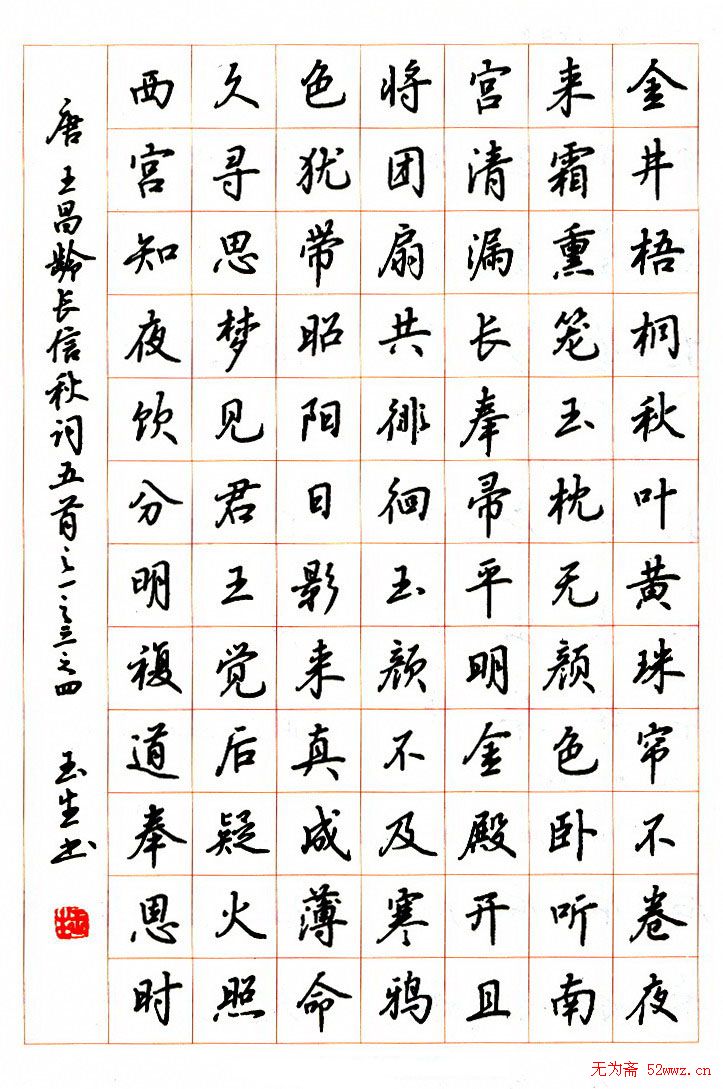 金井梧桐秋叶黄珠帘不卷夜
来霜熏笼玉枕无颜色卧听南
宫清漏长奉帚平明金殿开且
将团扇共徘徊玉颜不及寒鸦
色犹带昭阳日影来真成薄命
久寻思梦见君王觉后疑火照
西宫知夜饮分明複道奉恩时
唐王昌龄长信秋词五首之一之三之四 玉生书
无为斋 52wwz.cn